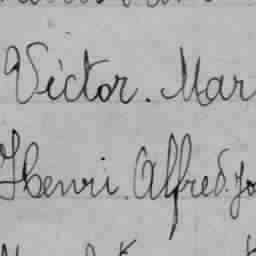 Victor. Mar
Henri. Alfred. Jo